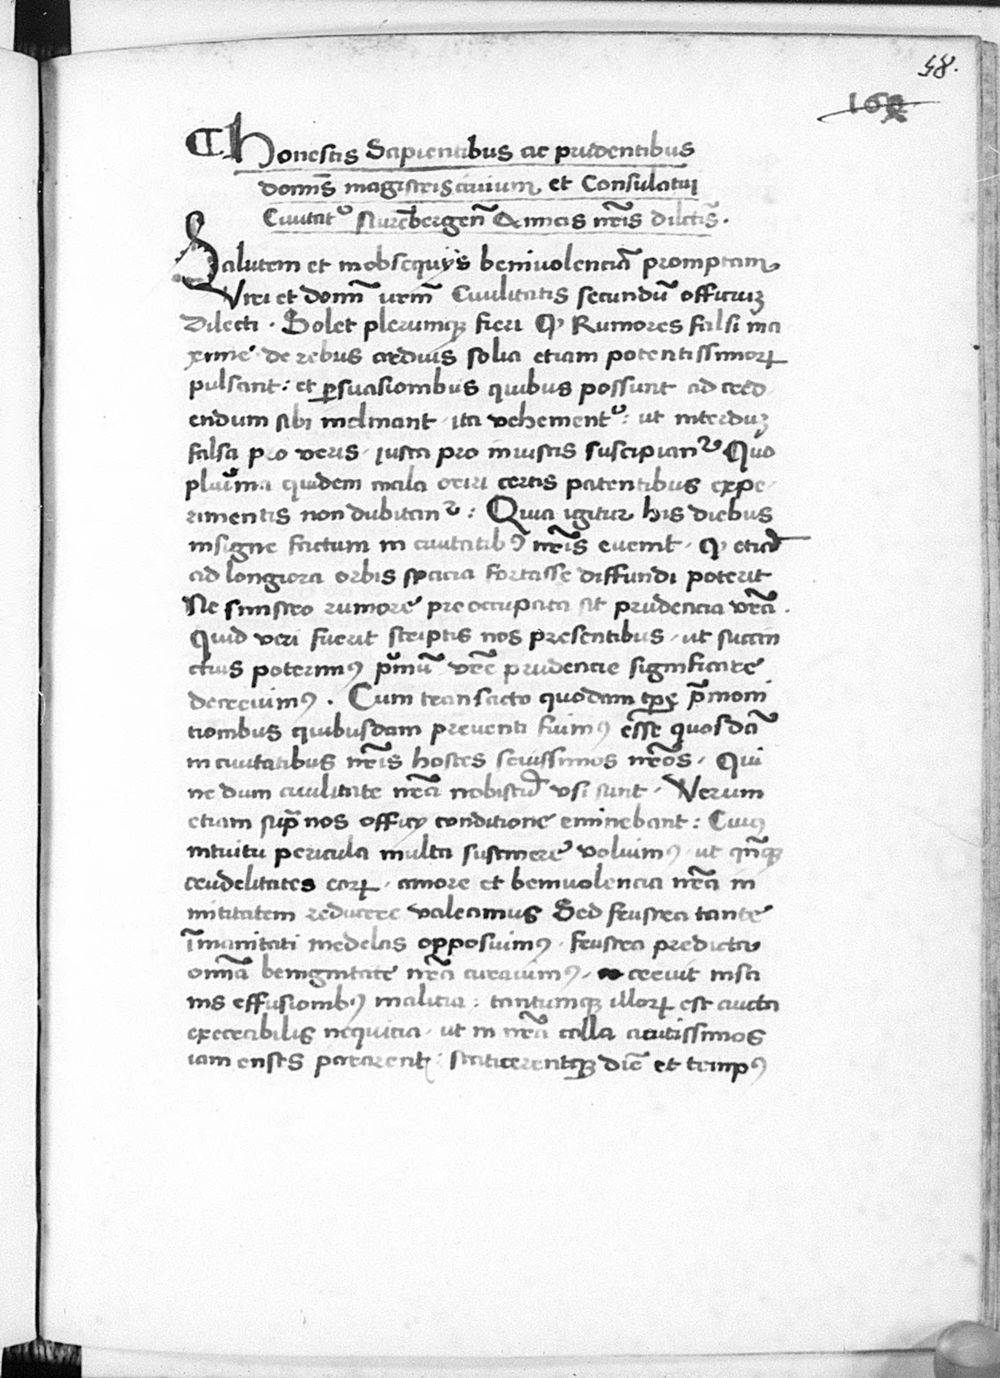 58.
168
Honestis Sapientibus ac prudentibus
domīs magistris ciuium et Consulatui
Ciuitatꝰ Nurēbergeñ Amicis nr̄is dilectis̄.
Salutem et in obsequijs beniuolenciā promptam
Viri et domī urm̄ Ciuilitatis secundū officiuꝫ
Dilecti. Solet plerumqꝫ fieri Qꝫ Rumores falsi ma
xime de rebus arduis solia etiam potentissimoꝝ
pulsant: et ꝑsuasionibus quibus possunt ad cred
endum sibi inclinant ita vehementꝰ: ut interduꝫ
falsa pro veris iusta pro iniustis suscipianꝰ Quo
pluīma quidem mala oriri certis patentibus expe
rimentis non dubitanꝰ: Quia igitur his diebus
insigne factum in ciuitatibꝫ nr̄is euenit. Qꝫ etiā
ad longiora orbis spacia fortasse diffundi poterit
Ne sinistro rumore preoccupata sit prudencia vr̄a.
Quid veri fuerit scriptis nos presentibus ut succin
ctius poterimꝰ pͥmū vr̄e prudencie significare
decreuimꝰ. Cum transacto quodam tp̄e p̄moni
tionibus quibusdam preuenti fuimꝰ ess̄e quosdā
in ciuitatibus nr̄is hostes seuissimos nr̄os. Qui
ne dum ciuilitate nr̄a nobiscū vsi sunt. Verum
etiam sup̄ nos officij conditione eminebant: Cuiꝰ
intuitu pericula multa sustinere voluimꝰ ut qn̄qꝫ
crudelitates eoꝝ amore et beniuolencia nr̄a in
mititatem reducere valeamus Sed frustra tante
īmanitati medelas opposuimꝰ frustra predicta
omā benignitate nr̄a curauimꝰ. creuit insa
nis effusionibꝫ malitia: tantumqꝫ illoꝝ est aucta
execrabilis nequitia ut in nr̄a colla acutissimos
iam enses pararent: statuerentqꝫ diē et tempꝰ